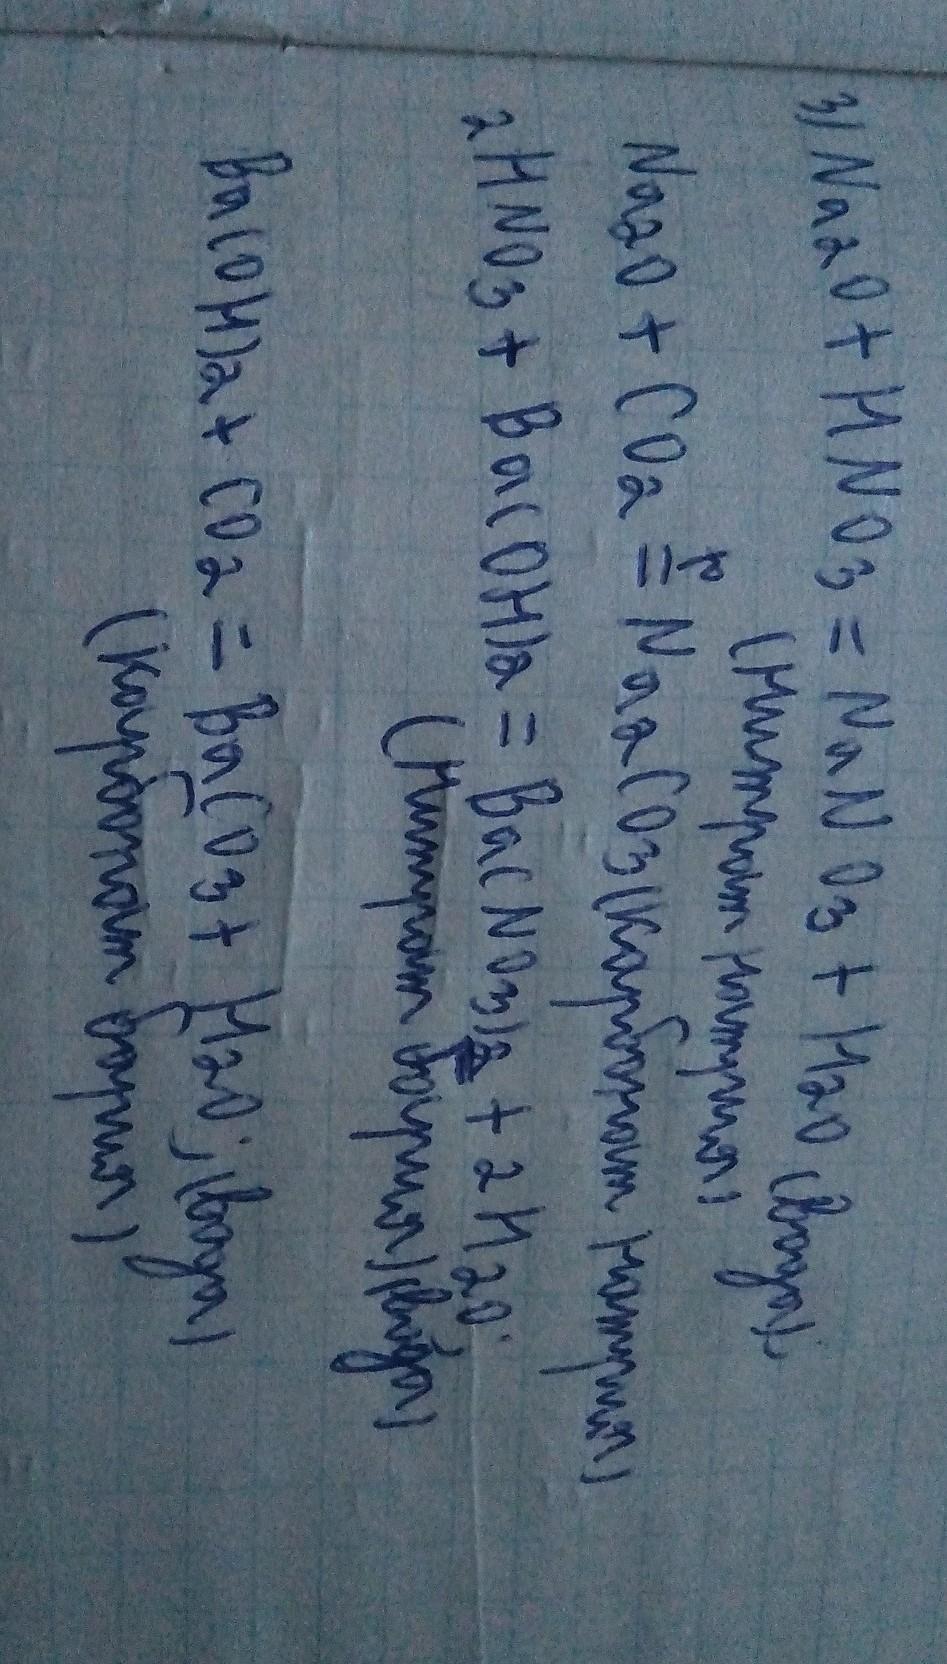 3) Na2O + HNO3 = NaNO3 + H2O (вода);
(Нитрат натрия)
Na2O + CO2 = Na2CO3 (Карбонат натрия)
2HNO3 + Ba(OH)2 = Ba(NO3)2 + 2H2O;
(Нитрат бария) (вода)
Ba(OH)2 + CO2 = BaCO3 + H2O; (вода)
(Карбонат бария)